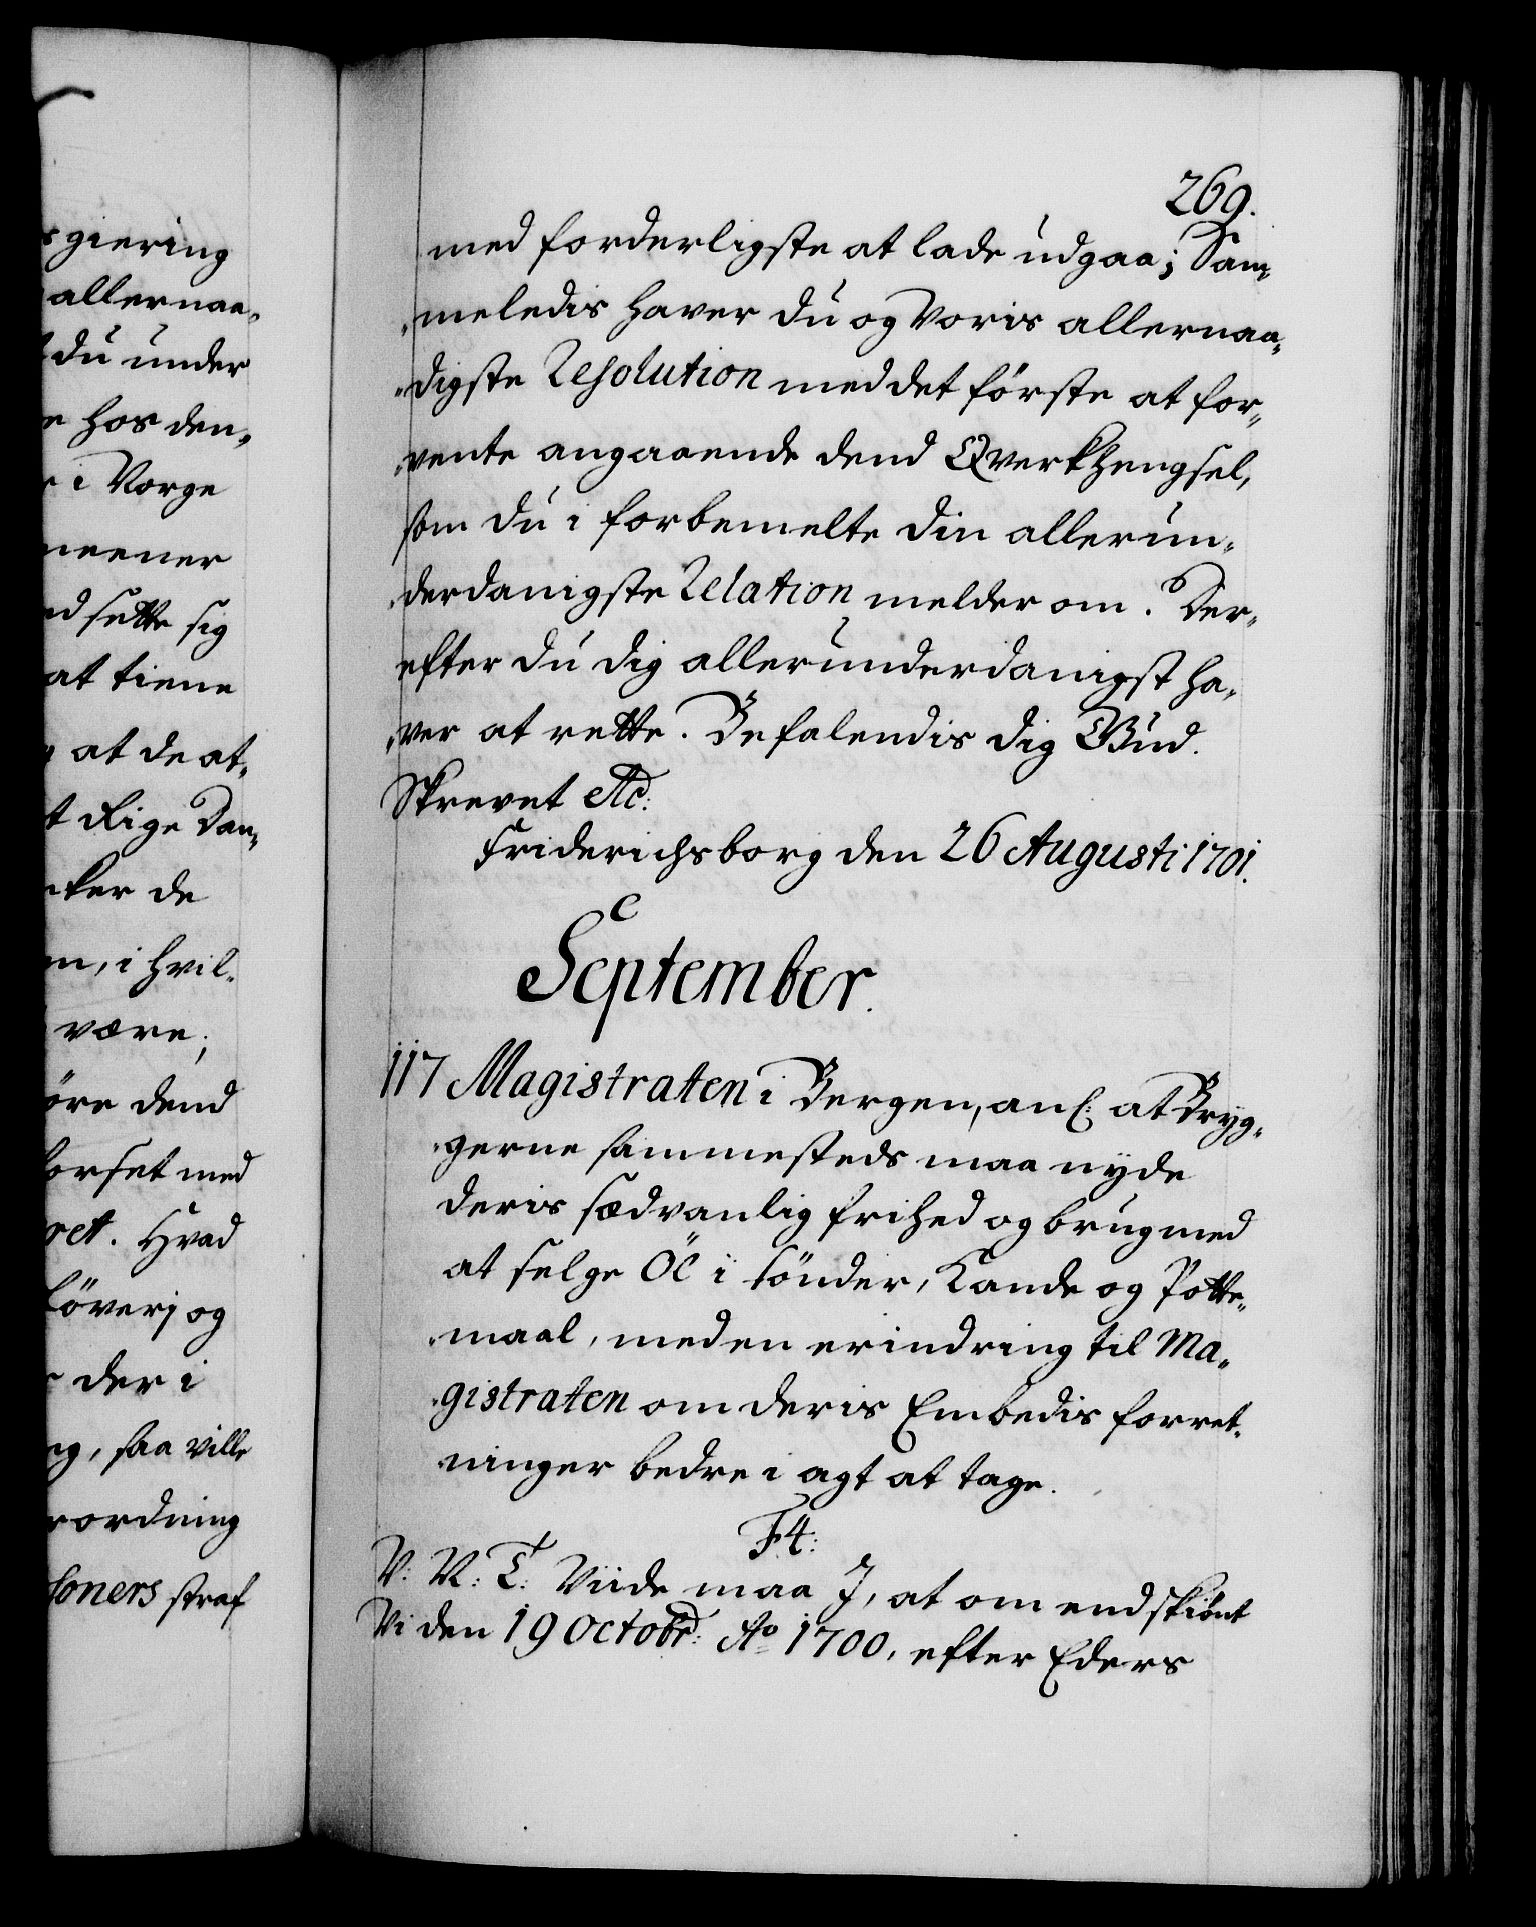 giering
allernaa-
du under
hos den-
i Norge
meener
sette sig
at tiene
at de at-
Rige Dan-
de
i hvil-
være;
dend
med
ret. Hvad
og
der i
saa ville
ordning
soners straf
269.
med forderligste at lade udgaa; Sam-
meledis haver du og Voris allernaa-
digste Resolution med det förste at for-
vente angaaende dend Qverkhengsel,
som du i forbemelte din allerun-
derdanigste Relation melder om. Der-
efter du dig allerunderdanigst ha-
ver at rette. Befalendis dig Gud.
Skrevet etc:
Friderichsborg den 26 Augusti 1701.
September.
117 Magistraten i Bergen, anl: at Bryg-
gerne sammesteds maa nyde
deris sædvanlig frihed og brug med
at selge Öl i tönder, Kande og Potte-
maal, med en erindring til Ma-
gistraten om deris Embedis forret-
ninger bedre i agt at tage.
F4:
V: N: T: Viide maa J, at om endskiönt
Vi den 19 Octobr: Ao 1700, efter Eders